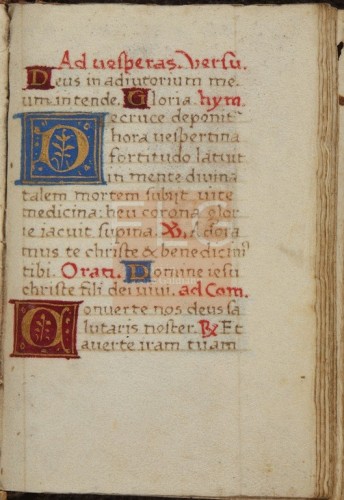 Ad uesperas. Versu.
Deus in adiutorium me
um intende. Gloria. hym.
De cruce deponit᷑
hora uespertina
fortitudo latuit
in mente diuina
talem mortem subijt uite
medicina: heu corona glor
ie iacuit supina. ℣. Adora
mus te christe & benedicim᷒
tibi. Orati. Domine iesu
christe fili dei uiui. ad Com.
Conuerte nos deus sa
lutaris noster. ℟ Et
auerte iram tuam